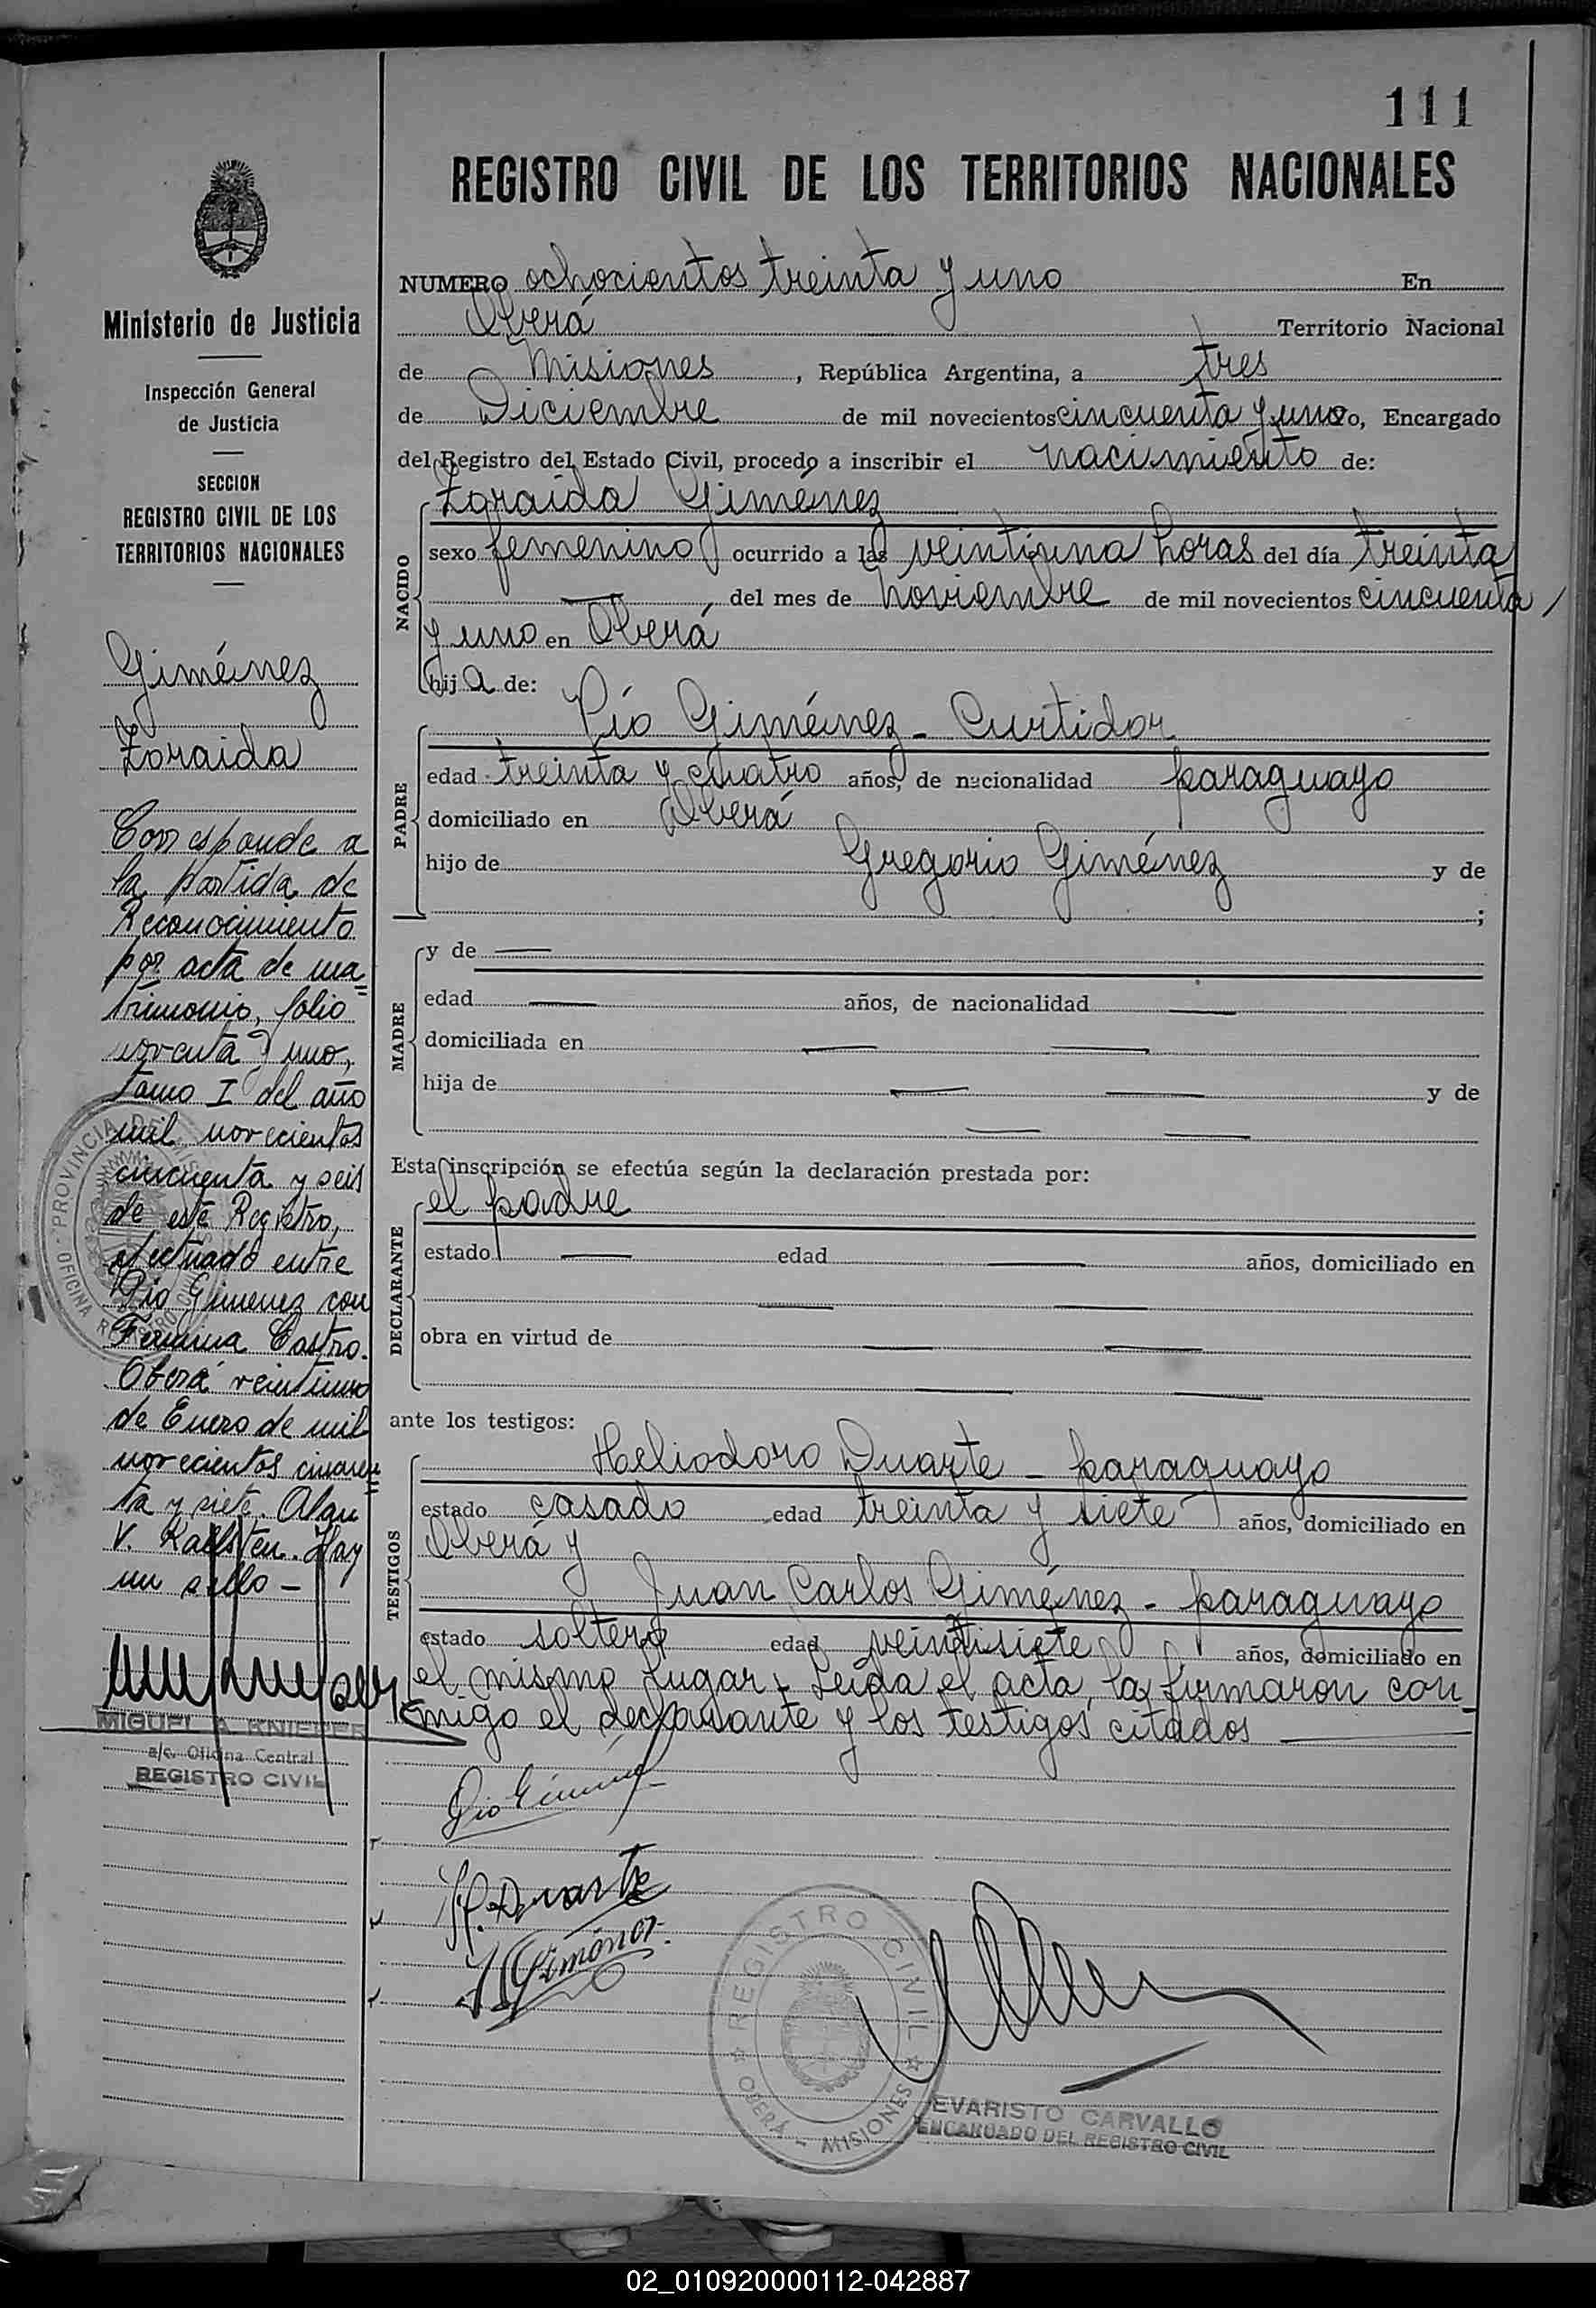 111
REGISTRO CIVIL DE LOS TERRITORIOS NACIONALES
Ministerio de Justicia
Inspección General
de Justicia
SECCION
REGISTRO CIVIL DE LOS
TERRITORIOS NACIONALES
Giménez
Zoraida
Corresponde a
la partida de
Reconocimiento
por acta de ma=
trimonio, folio
noventa y uno,
tomo I del año
mil novecientos
cincuenta y seis
de este Registro,
efectuado entre
Pio Gimenez con
Fermina Castro.
Oberá veintiuno
de Enero de mil
novecientos cincuen=
ta y siete. Alan
V. Kallsten. Hay
un sello -
MIGUEL A. KNIEPER
a/c. Oficina Central
REGISTRO CIVIL
PROVINCIA DE MISIONES
OFICINA REGISTRO
NUMERO ochocientos treinta y uno En
Oberá Territorio Nacional
de Misiones, República Argentina, a tres
de Diciembre de mil novecientos cincuenta y uno yo, Encargado
del Registro del Estado Civil, procedo a inscribir el nacimiento de:
NACIDO
Zoraida Giménez
sexo femenino ocurrido a las veintiuna horas del día treinta
— del mes de noviembre de mil novecientos cincuenta
y uno en Oberá
hija de:
PADRE
Pío Giménez - Curtidor
edad treinta y cuatro años, de nacionalidad paraguayo
domiciliado en Oberá
hijo de Gregorio Giménez y de
;
MADRE
y de —
edad — años, de nacionalidad —
domiciliada en — —
hija de — — y de
— —
Esta inscripción se efectúa según la declaración prestada por:
DECLARANTE
el padre
estado — edad — años, domiciliado en
— —
obra en virtud de — —
— —
ante los testigos:
TESTIGOS
Heliodoro Duarte - paraguayo
estado casado edad treinta y siete años, domiciliado en
Oberá y
Juan Carlos Giménez - paraguayo
estado soltero edad veintisiete años, domiciliado en
el mismo lugar. Leída el acta, la firmaron con-
migo el declarante y los testigos citados —
Pio Giménez
H. Duarte
J C Giménez
REGISTRO CIVIL
OBERÁ - MISIONES
EVARISTO CARVALLO
ENCARGADO DEL REGISTRO CIVIL
02_010920000112-042887